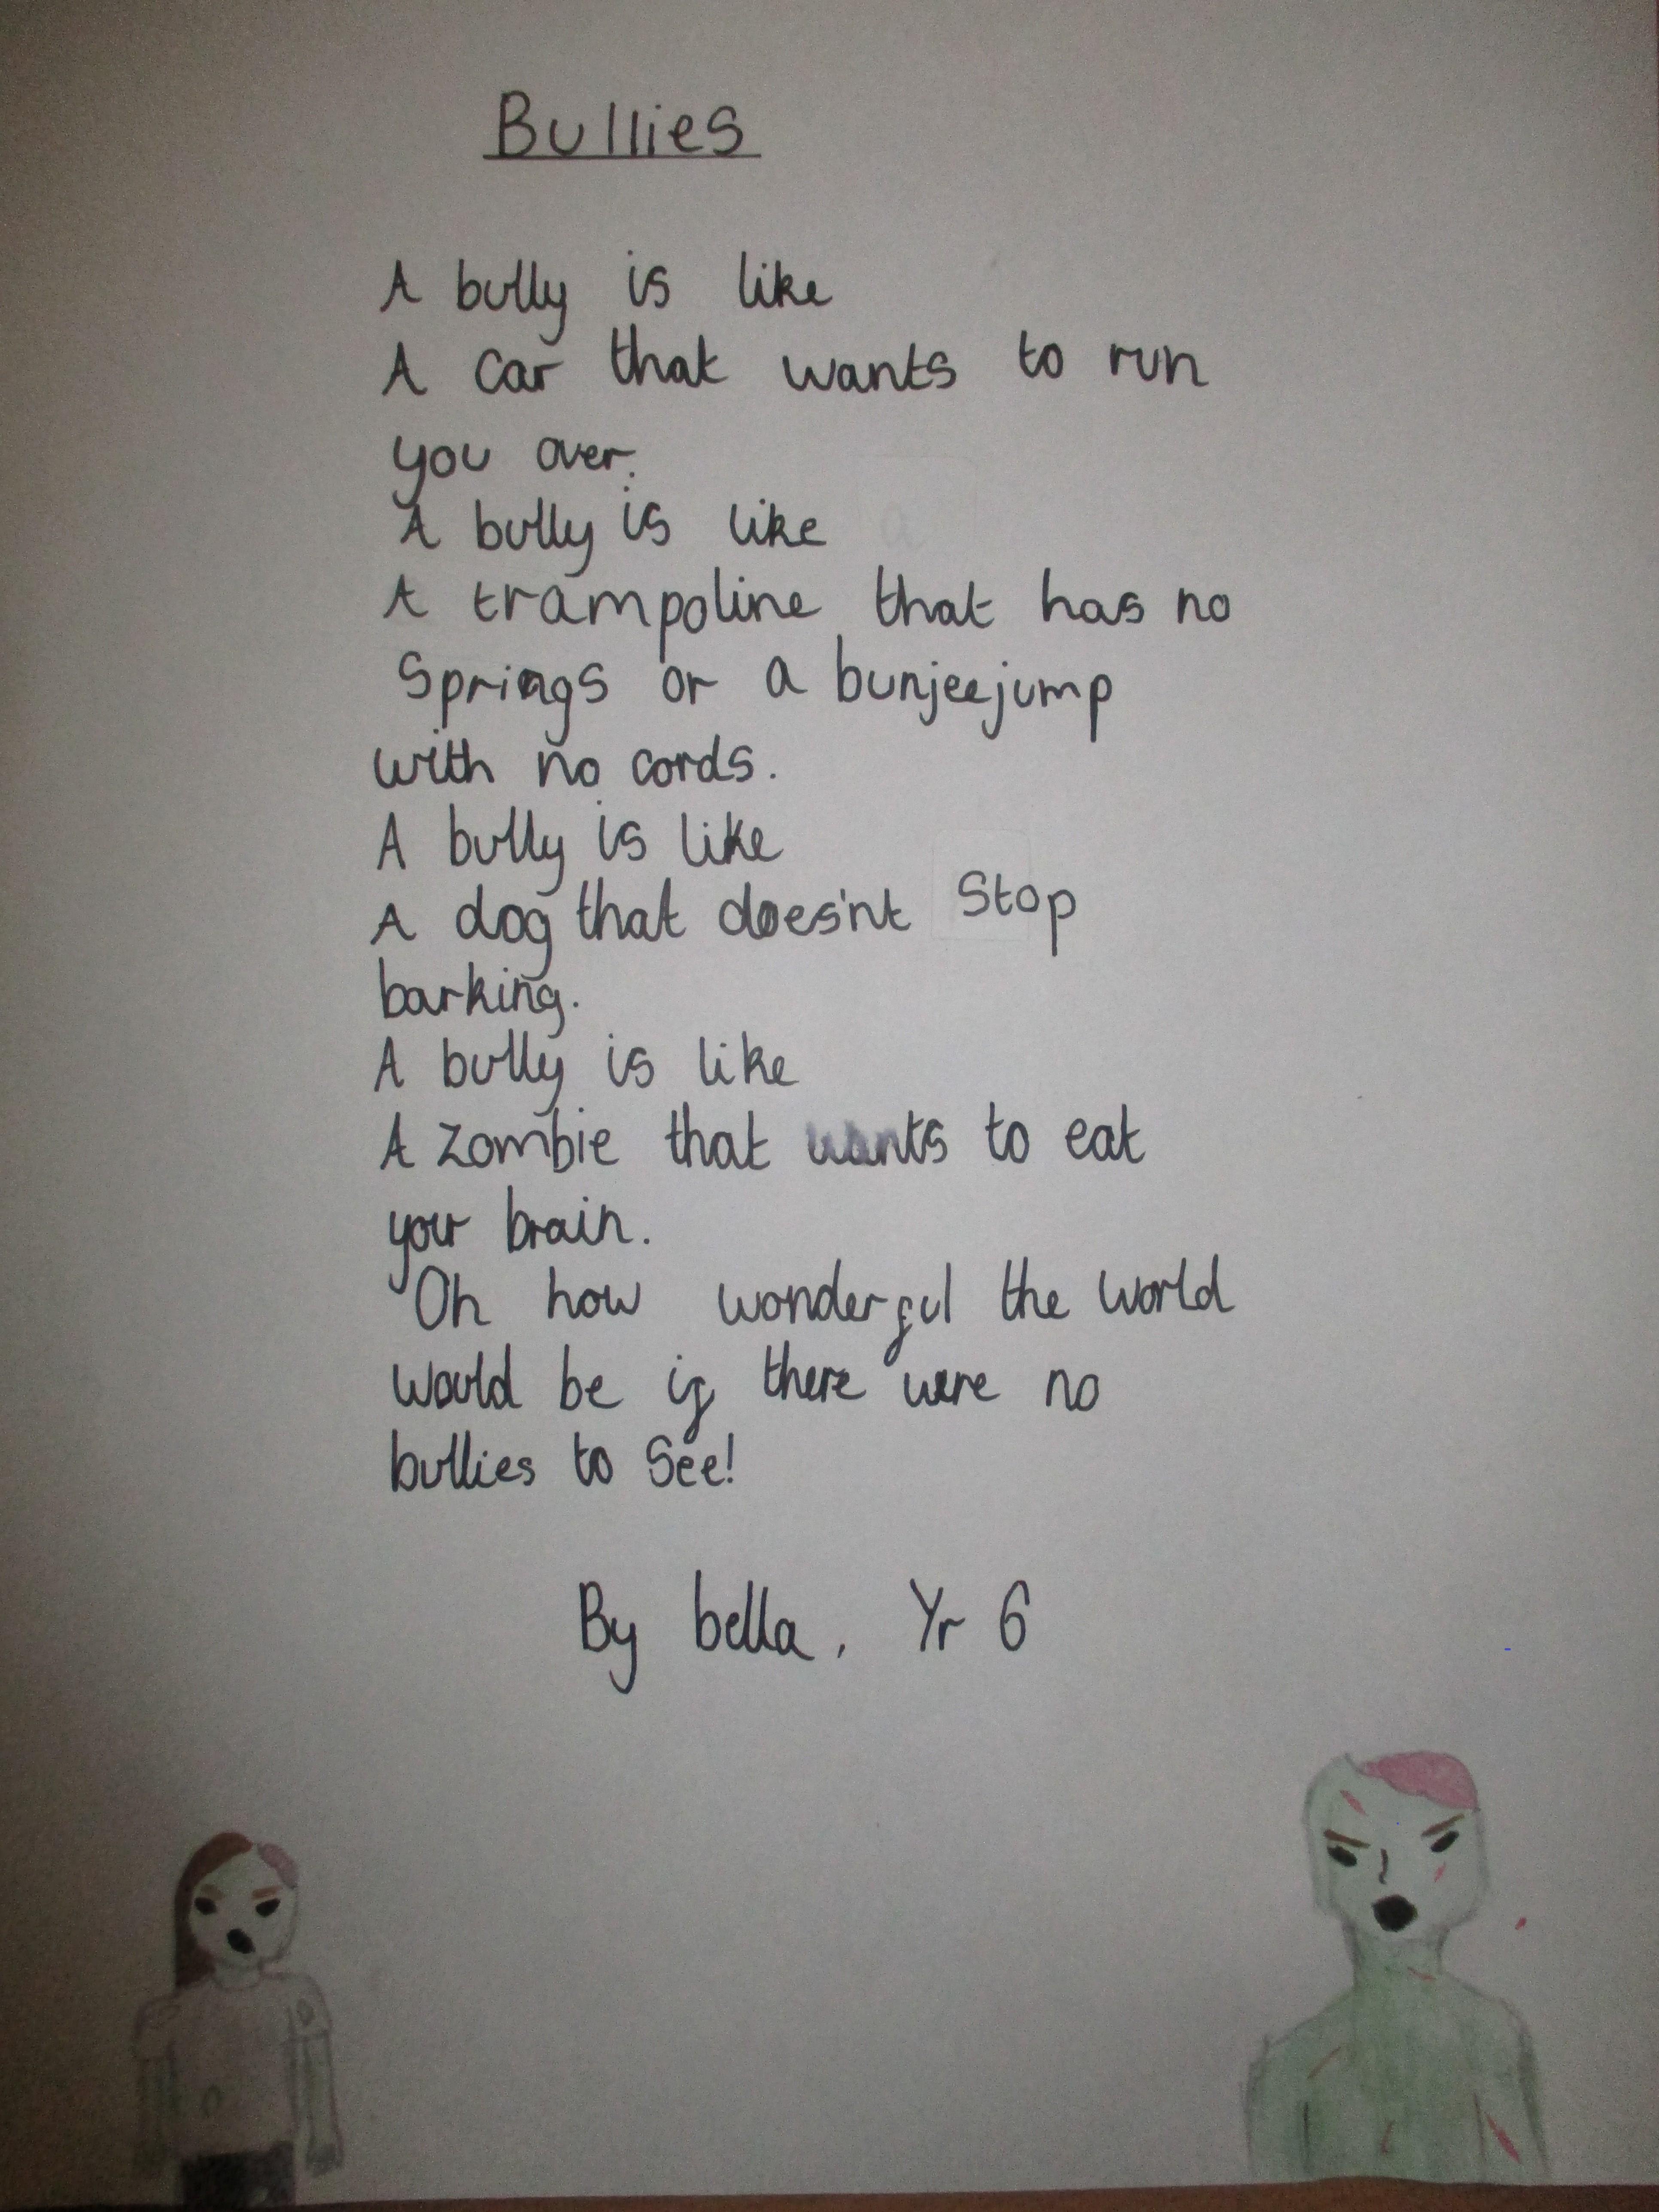 Bullies
A bully is like
A car that wants to run
you over.
A bully is like
A trampoline that has no
Springs or a bunjeejump
with no cords.
A bully is like
A dog that does'nt Stop
barking.
A bully is like
A zombie that wants to eat
your brain.
Oh how wonderful the world
would be if there were no
bullies to See!
By bella, Yr 6